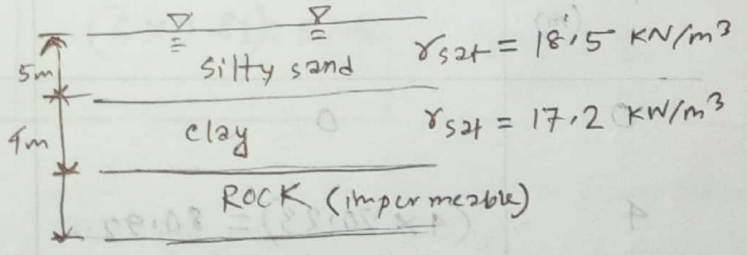 5m silty sand γsat = 18.5 KN/m³
4m clay γsat = 17.2 KN/m³
ROCK (impermeable)